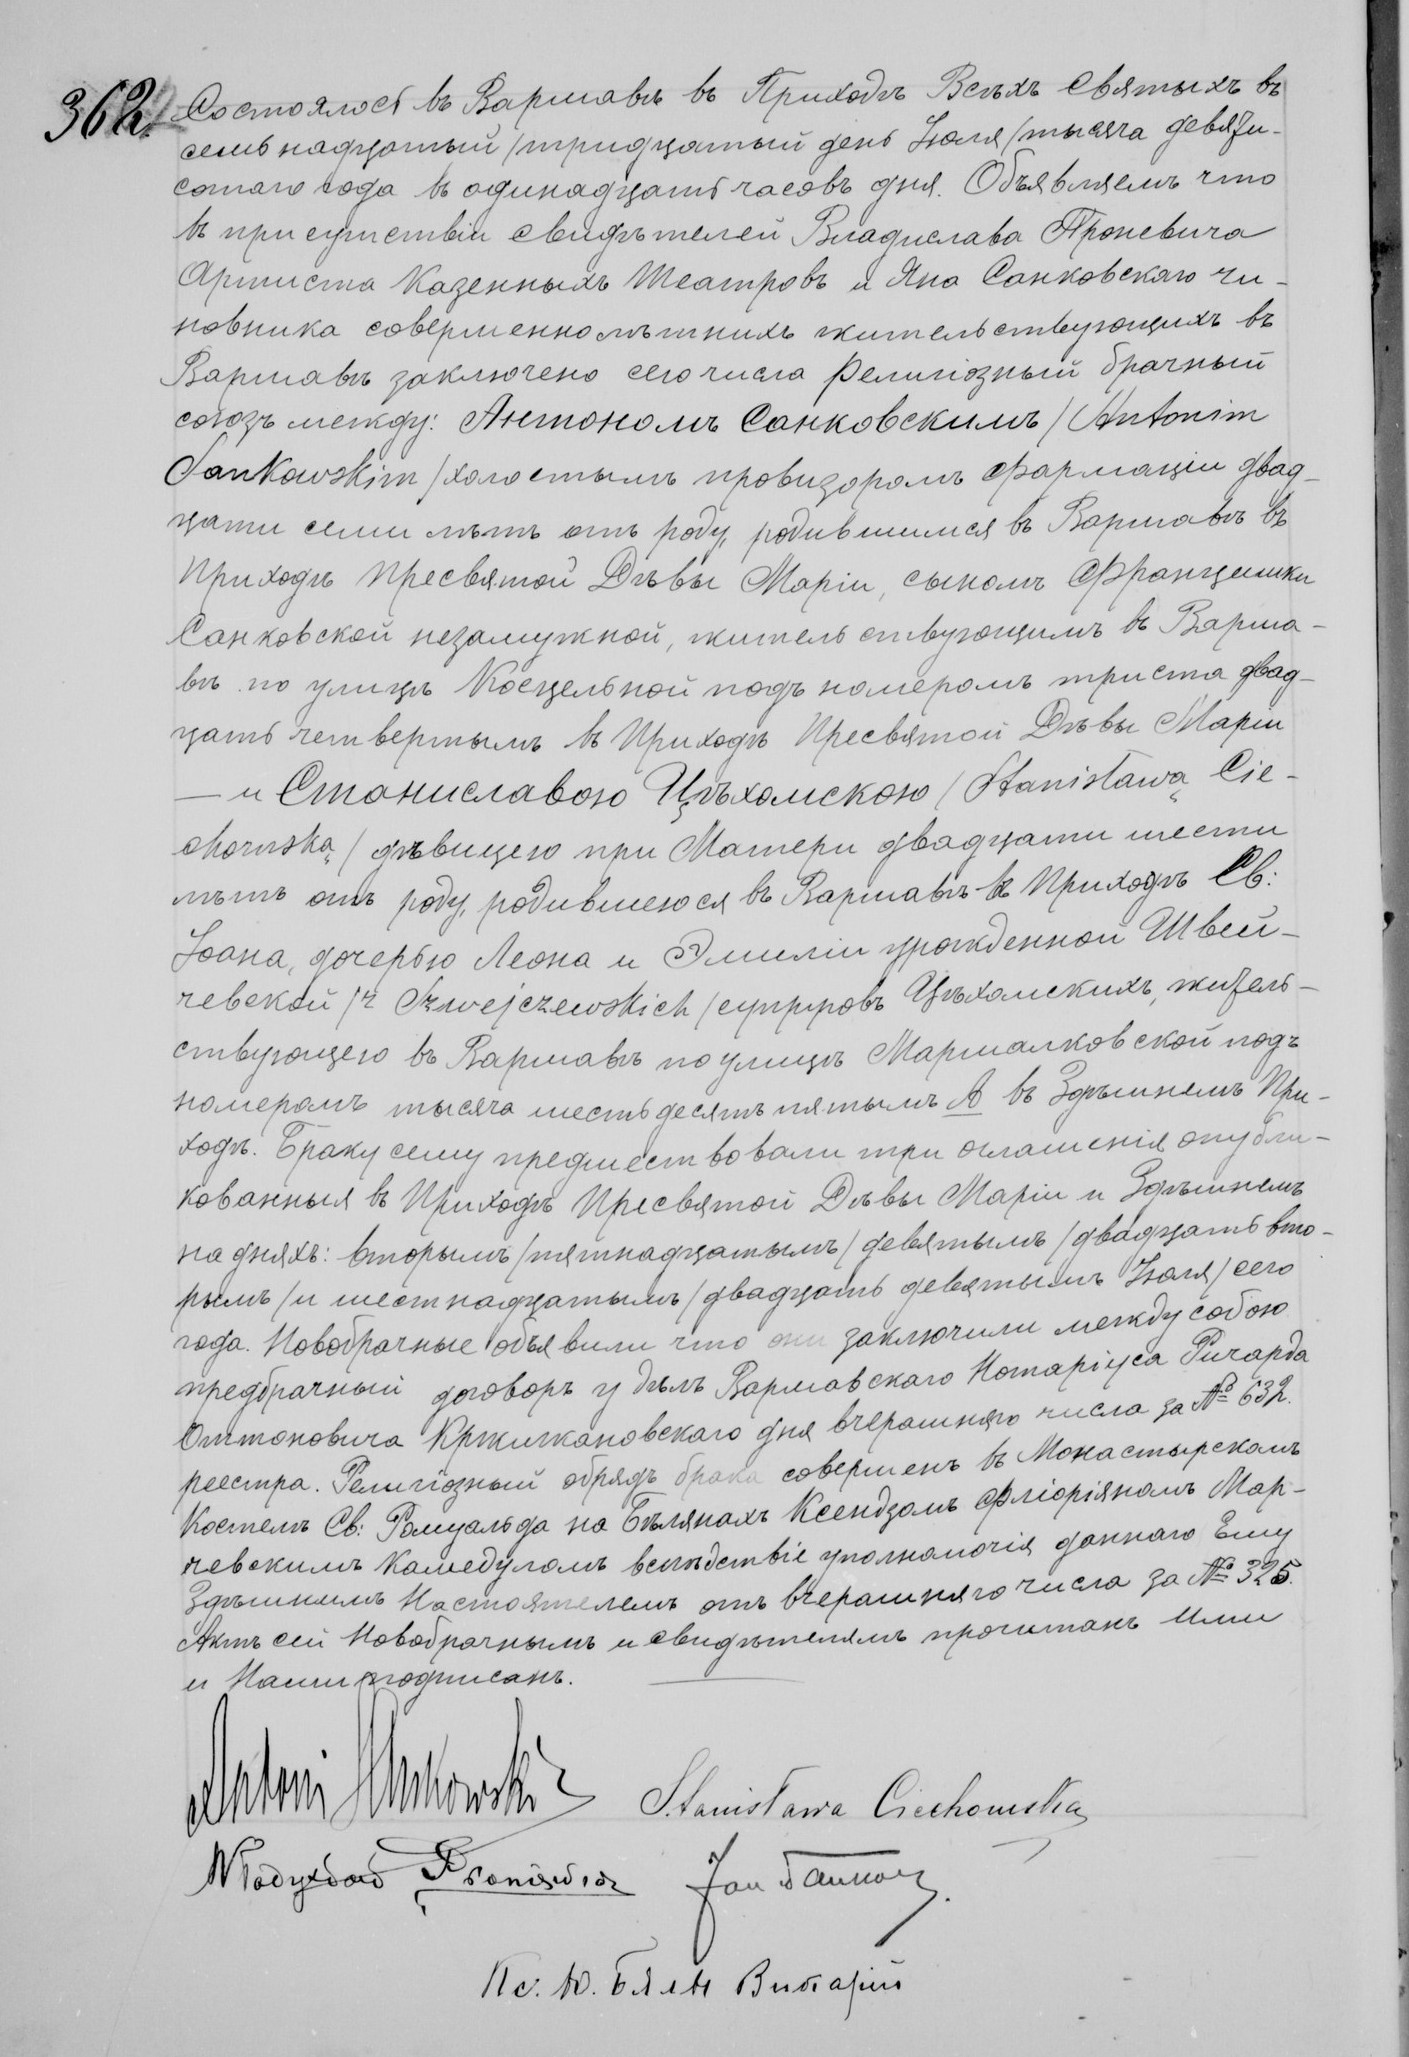 362.
Состоялось въ Варшавѣ въ Приходѣ Всѣхъ Святыхъ въ
семьнадцатый /тридцатый день Іюля/ тысяча девяти-
сотаго года въ одинадцать часовъ дня. Объявляемъ что
въ присутствіи свидѣтелей Владислава Проневича
Артиста Казенныхъ Театровъ и Яна Санковскаго чи-
новника совершеннолѣтнихъ жительствующихъ въ
Варшавѣ заключено сего числа религіозный брачный
союзъ между: Антономъ Санковскимъ /Antonim
Sankowskim/ холостымъ провизоромъ фармаціи двад-
цати семи лѣтъ отъ роду, родившимся въ Варшавѣ въ
Приходѣ Пресвятой Дѣвы Маріи, сыномъ Францишки
Санковской незамужной, жительствующимъ въ Варша-
вѣ по улицѣ Косцельной подъ номеромъ триста двад-
цать четвертымъ въ Приходѣ Пресвятой Дѣвы Маріи
— и Станиславою Цѣхомскою /Stanisławą Cie-
chomską/ дѣвицею при Матери двадцати шести
лѣтъ отъ роду, родившеюся въ Варшавѣ въ Приходѣ Св:
Іоана, дочерью Леона и Эмиліи урожденной Швей-
чевской /z Szwejczewskich/ супруговъ Цѣхомскихъ, житель-
ствующею въ Варшавѣ по улицѣ Маршалковской подъ
номеромъ тысяча шестьдесятъ пятымъ А въ Здѣшнемъ При-
ходѣ. Браку сему предшествовали три оглашенія опубли-
кованныя въ Приходѣ Пресвятой Дѣвы Маріи и Здѣшнемъ
на дняхъ: вторымъ /пятнадцатымъ/ девятымъ /двадцать вто-
рымъ/ и шестнадцатымъ /двадцать девятымъ Іюля/ сего
года. Новобрачные объявили что они заключили между собою
предбрачный договоръ у дѣлъ Варшавскаго Нотаріуса Ричарда
Оттоновича Кржижановскаго дня вчерашняго числа за № 632.
реестра. Религіозный обрядъ брака совершенъ въ Монастырскомъ
Костелѣ Св: Ромуальда на Бѣлянахъ Ксендзомъ Флоріяномъ Мар-
чевскимъ Камедуломъ вслѣдствіе уполномочія даннаго Ему
Здѣшнимъ Настоятелемъ отъ вчерашняго числа за № 325.
Актъ сей Новобрачнымъ и свидѣтелямъ прочитанъ Ими
и Нами подписанъ.
Antoni Sankowski Stanisława Ciechomska
Władysław Proniewicz Jan Sankow
Кс. Ю. Бялы Викарій